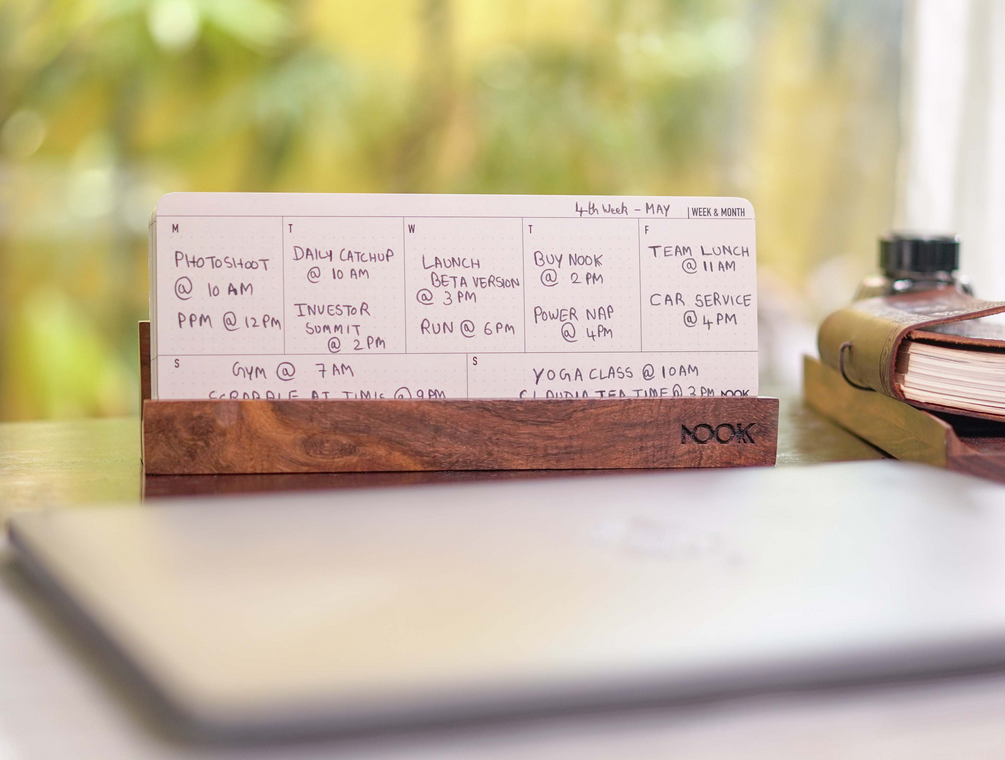 4th Week - MAY | WEEK & MONTH
M
PHOTOSHOOT
@ 10 AM
PPM @ 12PM
T
DAILY CATCHUP
@ 10 AM
INVESTOR
SUMMIT
@ 2PM
W
LAUNCH
BETA VERSION
@ 3PM
RUN @ 6PM
T
BUY NOOK
@ 2PM
POWER NAP
@ 4PM
F
TEAM LUNCH
@ 11AM
CAR SERVICE
@ 4PM
S
GYM @ 7AM
SCRABBLE AT TIMIS @ 9PM
S
YOGA CLASS @ 10AM
CLAUDIA TEA TIME @ 3PM NOOK
NOOK